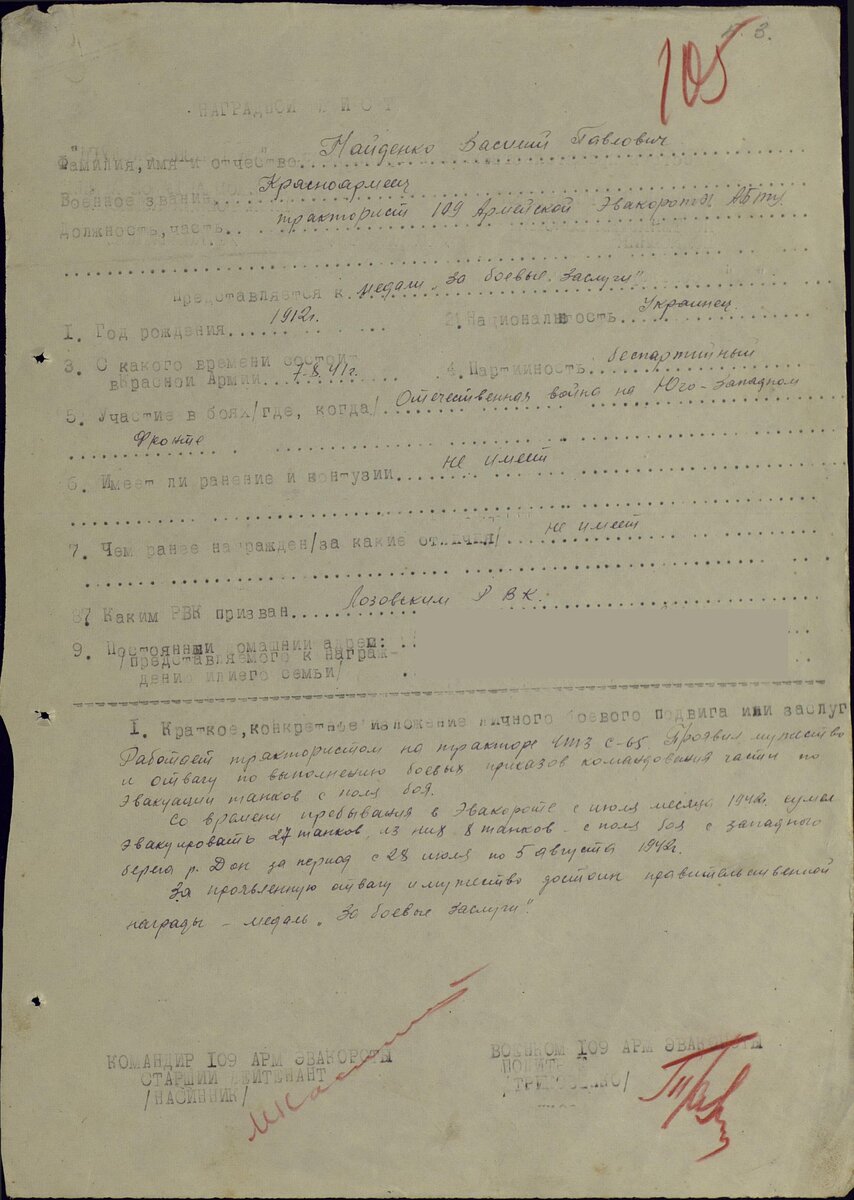 3.
105
НАГРАДНОЙ ЛИСТ
Фамилия, имя и отчество... Найденко Василий Павлович
Военное звание... Красноармеец
должность, часть... тракторист 109 Армейской Эвакороты АБТУ
Представляется к медали „За боевые заслуги"
I. Год рождения... 1912г. 2. Национальность... Украинец.
3. С какого времени состоит
в Красной Армии... 7.8.41г. 4. Партийность. беспартийный
5. Участие в боях/где, когда/ Отечественная война на Юго-Западном
Фронте
6. Имеет ли ранение и контузии... не имеет
7. Чем ранее награжден/за какие отличия/... не имеет
8. Каким РВК призван... Лозовским РВК.
9. Постоянный домашний адрес:
/представляемого к награж-
дению или его семьи/
I. Краткое, конкретное изложение личного боевого подвига или заслуг
Работает трактористом на тракторе ЧТЗ С-65. Проявил мужество
и отвагу по выполнению боевых приказов командования части по
эвакуации танков с поля боя.
Со времени пребывания в Эвакороте с июля месяца 1942г. сумел
эвакуировать 27 танков, из них 8 танков с поля боя с западного
берега р. Дон за период с 28 июля по 5 августа 1942г.
За проявленную отвагу и мужество достоин правительственной
награды – медаль „За боевые заслуги".
КОМАНДИР 109 АРМ ЭВАКОРОТЫ ВОЕНКОМ 109 АРМ ЭВАКОРОТЫ
СТАРШИЙ ЛЕЙТЕНАНТ
/НАСИННИК/